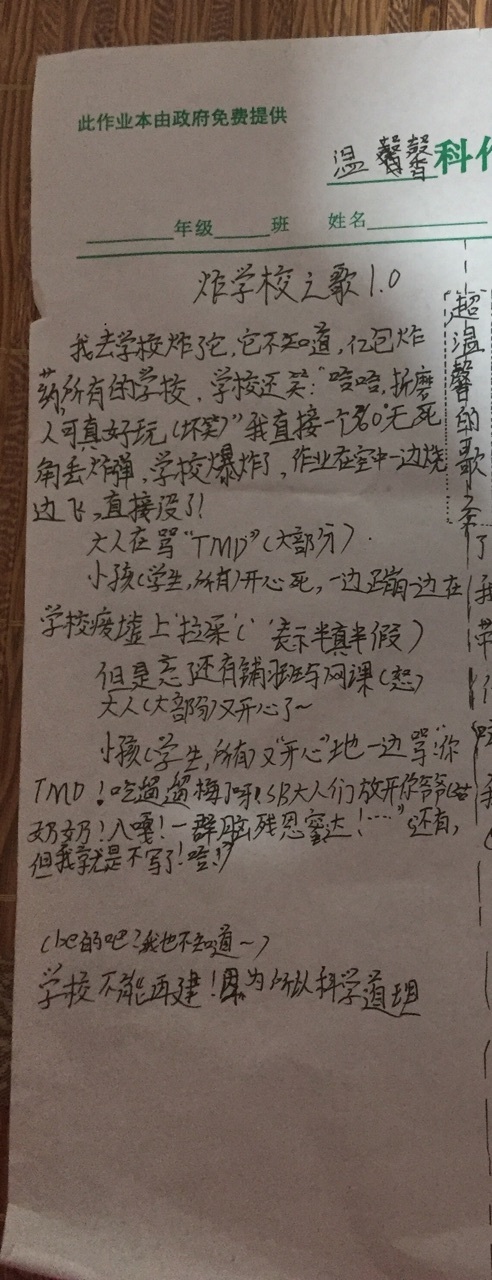 此作业本由政府免费提供
温馨 科作
年级 班 姓名
炸学校之歌1.0
我去学校炸了它,它不知道,亿包炸
药,所有的学校,学校还笑:“哈哈,折磨
人可真好玩(坏笑)”我直接一个360°无死
角丢炸弹,学校爆炸了,作业在空中一边烧
边飞,直接没了!
大人在骂“TMD”(大部分).
小孩(学生,所有)开心死,一边蹦一边在
学校废墟上‘拉采’(‘’表示半真半假)
但是忘了还有铺班与网课(怒)
大人(大部分)又开心了~
小孩(学生,所有)又“开心”地一边骂:“你
TMD!吃
SB大人们放开你爷爷
奶奶!八嘎!一群脑残恩
!……”还有,
但我就是不写了!哈!”
(be的吧?我也不知道~)
学校不能再建!因为所以科学道理
超温馨的歌
了
我
带